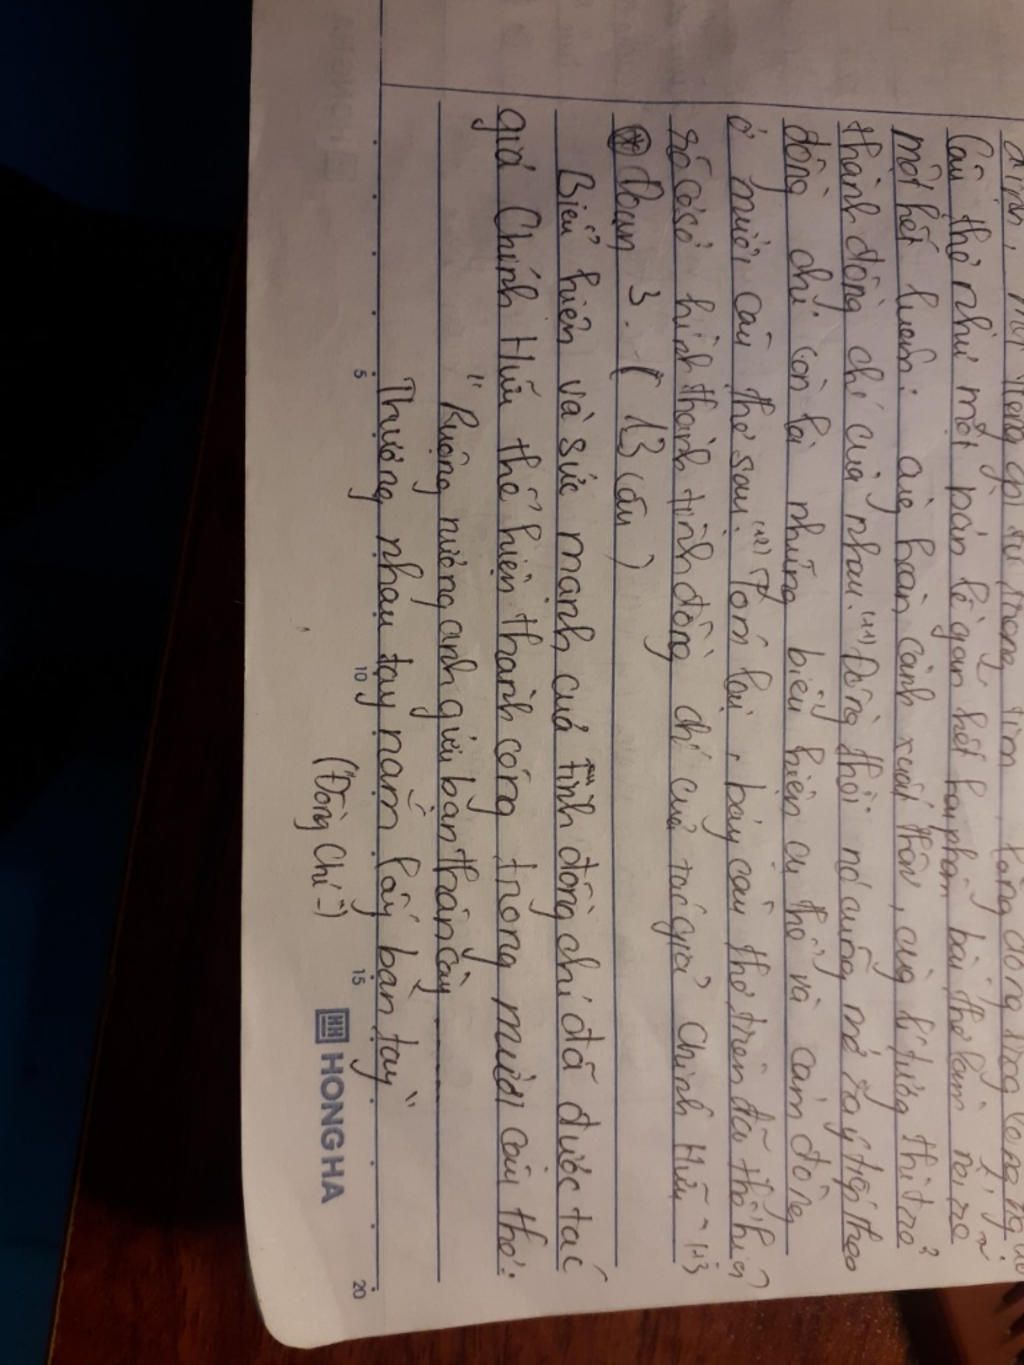 trong tim
câu thơ như một bản lề gắn kết hai phần bài thơ làm nổi rõ
một kết luận: cùng hoàn cảnh xuất thân, cùng lí tưởng thì trở
thành đồng chí của nhau. (11) Đồng thời nó cũng mở ra ý tiếp theo
đồng chí còn là những biểu hiện cụ thể và cảm động
ở mười câu thơ sau. (12) Tóm lại, bảy câu thơ trên đã thể hiện
rõ cơ sở hình thành tình đồng chí của tác giả Chính Hữu - (13
* Đoạn 3. (13 câu)
Biểu hiện và sức mạnh của tình đồng chí đã được tác
giả Chính Hữu thể hiện thành công trong mười câu thơ:
" Ruộng nương anh gửi bạn thân cày
Thương nhau tay nắm lấy bàn tay "
("Đồng Chí -)
5 10 15 20
HH HONG HA